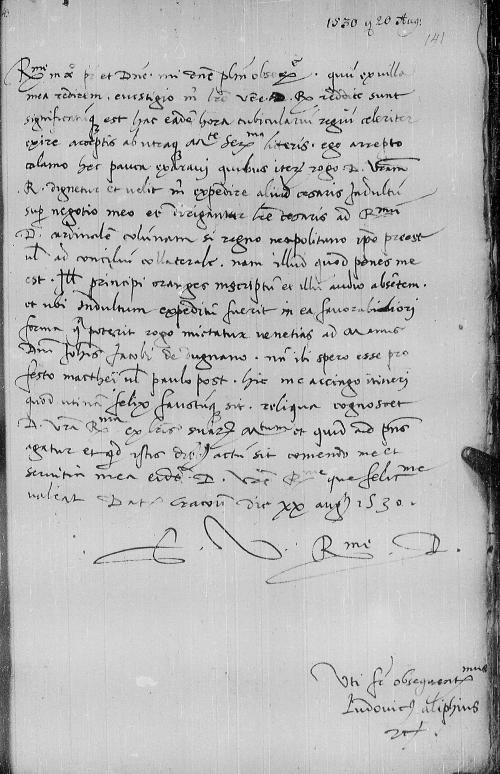 1530 20 Aug:
141
R me et Dne. mi dne obser . quu ex villa
mea redirem. e vestigio m lre vre D. R reddite sunt
significatuq est hac eade hora cubicularium regiu celeriter
exire acceptis ab utraq M te Ser ma literis. ego arrepto
calamo hec pauca exaravi quibus iteru rogo D. Vram
R. dignetur et velit m expedire aliud cesaris Indultu
sup negotio meo et dirigantur lre cesaris ad R mu
D. cardinale columnam si regno neapolitano preest
ul ad consiliu collaterale. nam illud quod penes me
est. Ill principi oranges inscriptu et illu audio absete.
et ubi Indultum expeditu fuerit in ea favorabiliori
forma q poterit rogo mictatur venetias ad manus
Dni Johis Jacobi de dugnano. nu ibi spero esse pro
festo matthei ul paulo post. hic me accingo itineri
quod utina felix faustuq sit. reliqua cognoscet
D. Vra R ma ex lris et quid ad pns
agatur et qd istis actu sit comendo me et
servitia mea eide D. Vre R me que felic me
valeat Dat Cracovie die xx augti 1530.
E. V. R me. D.
Uti fr obsequent mus
Ludovicus aliphius